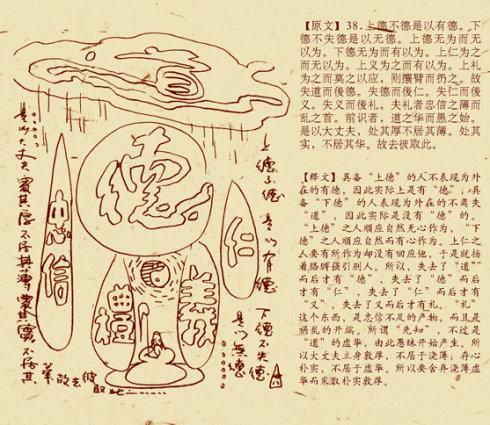 【原文】38.上德不德是以有德。下
德不失德是以无德。上德无为而无
以为。下德无为而有以为。上仁为之
而无以为。上义为之而有以为。上礼
为之而莫之以应，则攘臂而扔之。故
失道而後德。失德而後仁。失仁而後
义。失义而後礼。夫礼者忠信之薄而
乱之首。前识者，道之华而愚之始。
是以大丈夫，处其厚不居其薄。处其
实，不居其华。故去彼取此。
【释文】具备“上德”的人不表现为外
在的有德，因此实际上是有“德”；具
备“下德”的人表现为外在的不离失
“道”，因此实际是没有“德”的。
“上德”之人顺应自然无心作为，“下
德”之人顺应自然而有心作为。上仁之
人要有所作为却没有回应他，于是就扬
着胳膊强引别人。所以，失去了“道”
而后才有“德”，失去了“德”而后
才有“仁”，失去了“仁”而后才有
“义”，失去了义而后才有礼。“礼”
这个东西，是忠信不足的产物，而且是
祸乱的开端。所谓“先知”，不过是
“道”的虚华，由此愚昧开始产生。所
以大丈夫立身敦厚，不居于浇薄；存心
朴实，不居于虚华。所以要舍弃浇薄虚
华而采取朴实敦厚。
上德不德
是以有德
下德不失德
是以無德
德
仁
義
禮
忠信
是以大丈夫處其厚不居其薄處其實不居其
華故去彼取此